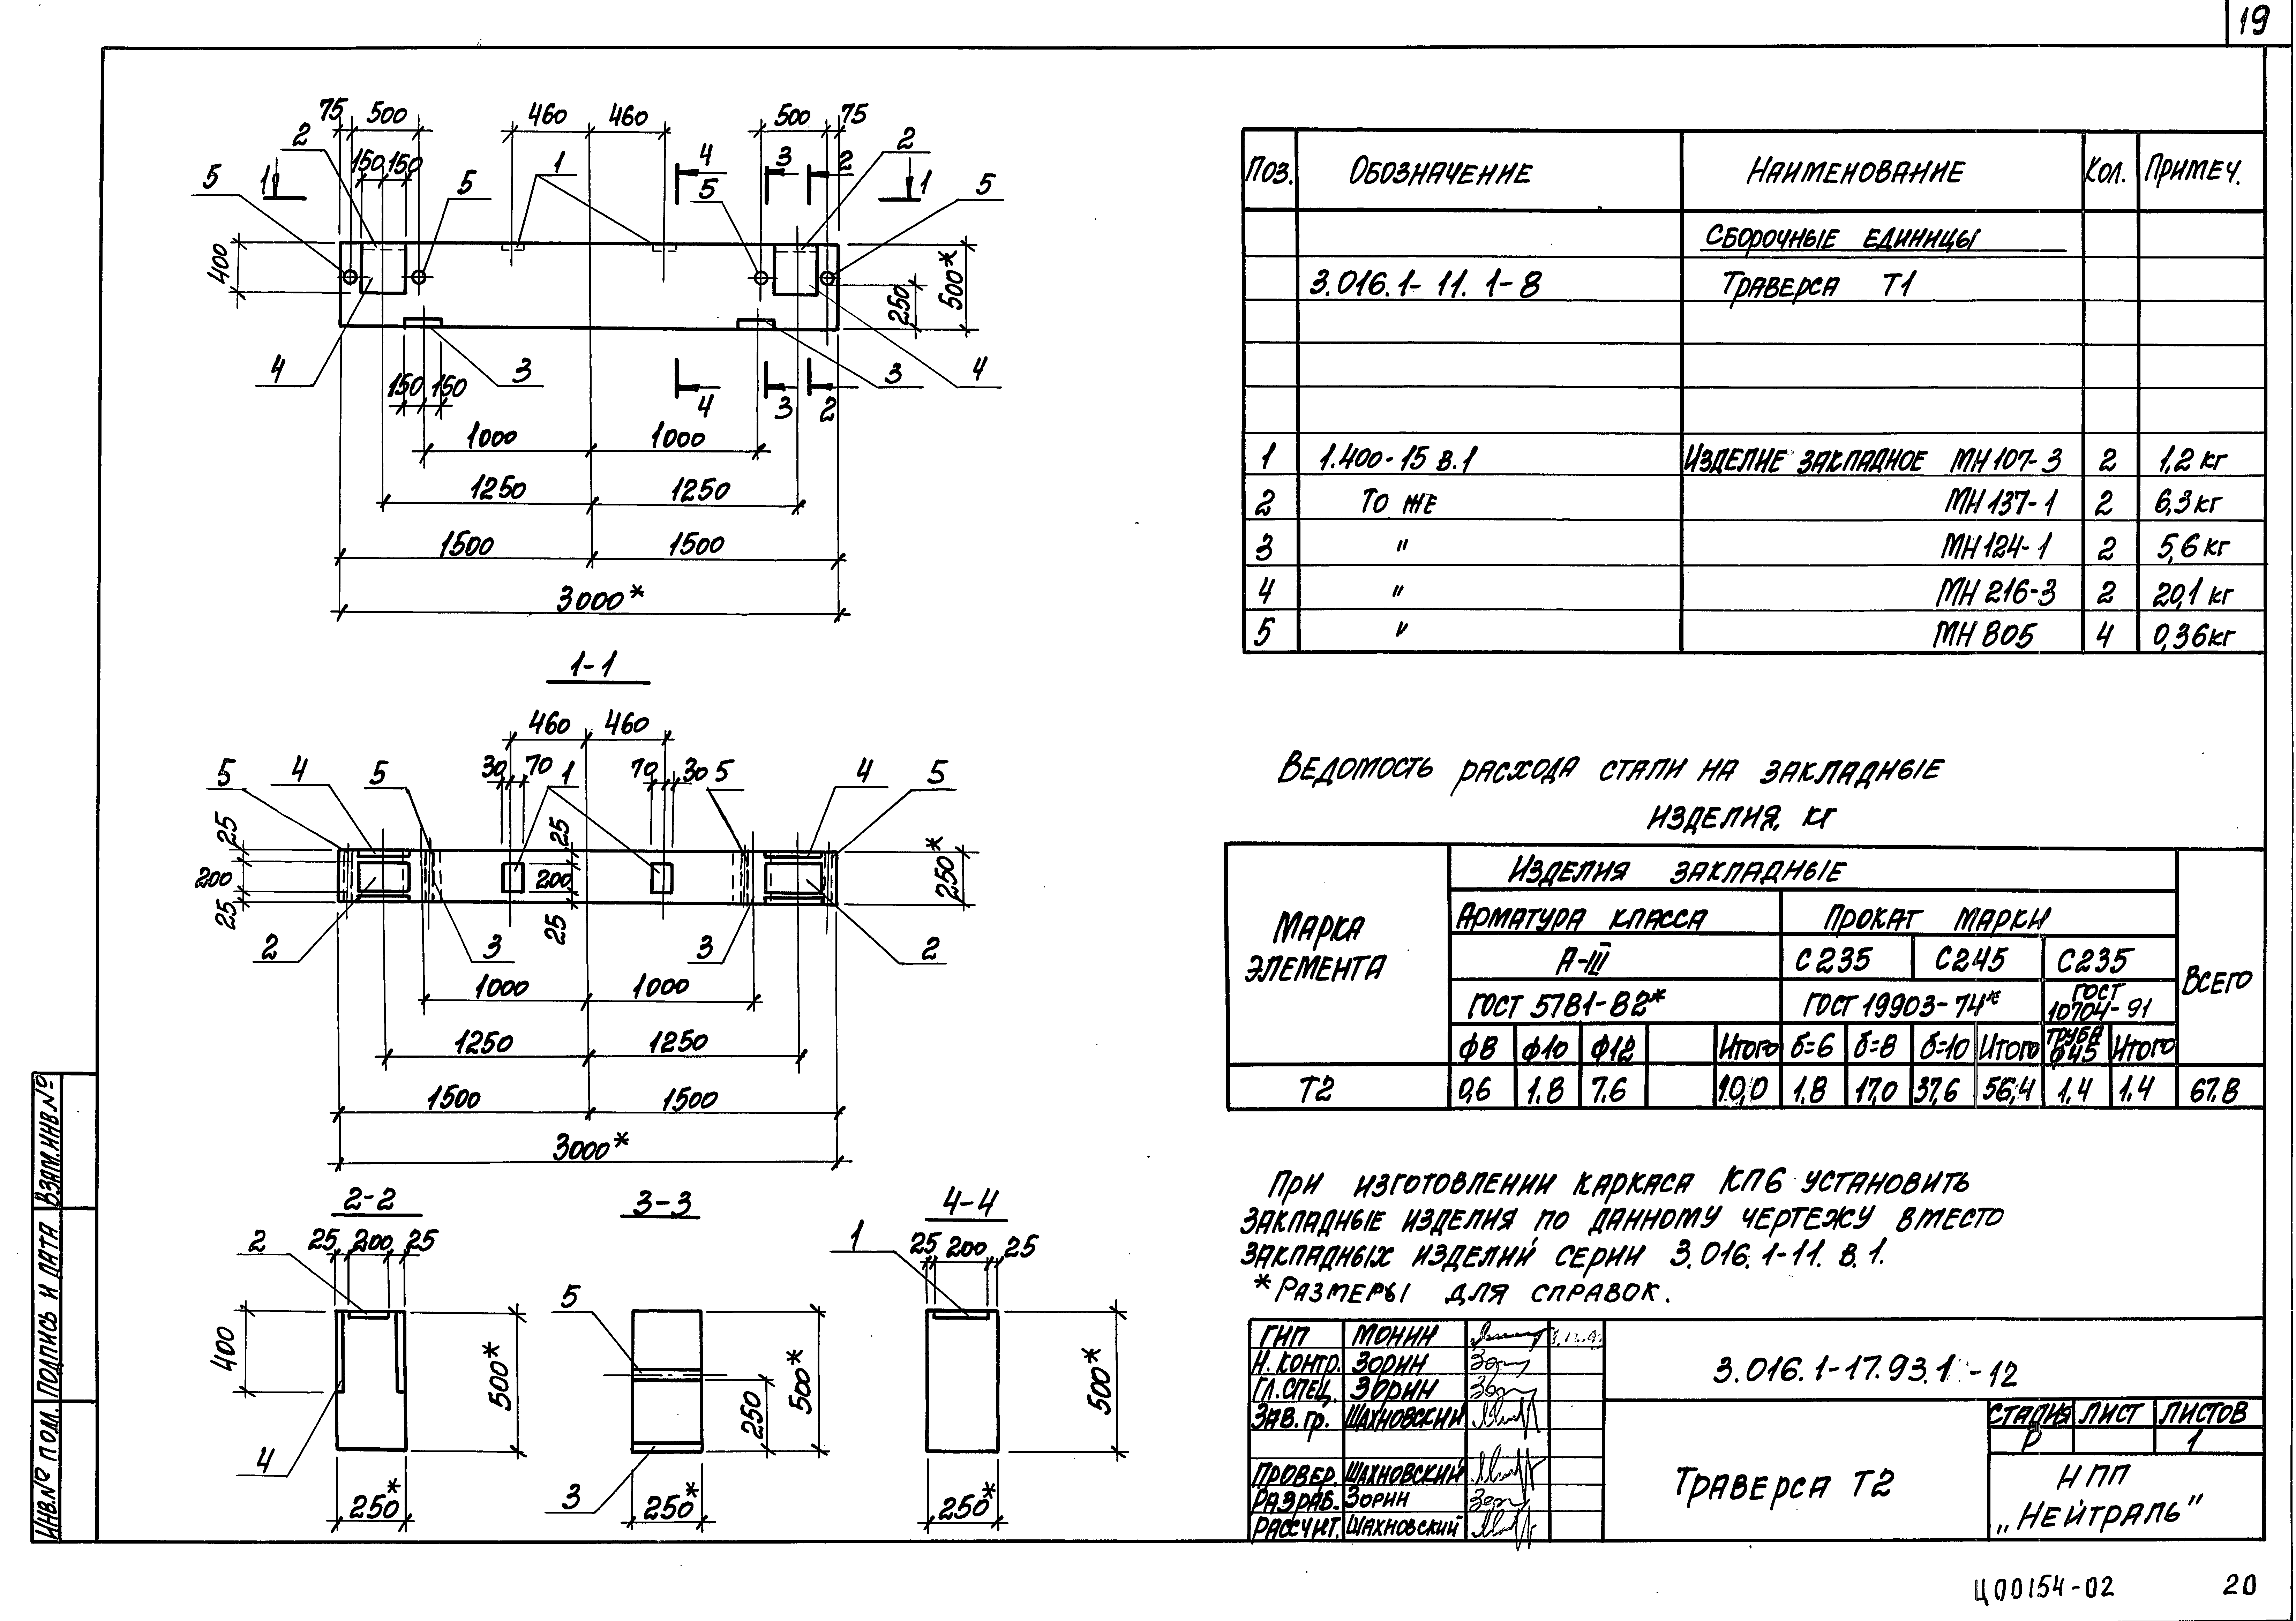 19
75 500 460 460 500 75
2 1 4 3 2 2
150 150
5 1 5 5 1 5
400 500* 250
4 3 3 4
150 150
4 3 2
1000 1000
1250 1250
1500 1500
3000*
1-1
460 460
5 4 5 30 70 1 70 30 5 4 5
25 200 25 25 200 25 250*
2 3 3 2
1000 1000
1250 1250
1500 1500
3000*
2-2 3-3 4-4
2 25 200 25 1 25 200 25
400 500* 5 500* 250 500*
4 3
250* 250* 250*
Поз. Обозначение Наименование Кол. Примеч.
Сборочные единицы
3.016.1-11.1-8 Траверса Т1
1 1.400-15 в.1 Изделие закладное МН 107-3 2 1,2 кг
2 То же МН 137-1 2 6,3 кг
3 " МН 124-1 2 5,6 кг
4 " МН 216-3 2 20,1 кг
5 " МН 805 4 0,36 кг
Ведомость расхода стали на закладные
изделия, кг
Марка элемента Изделия закладные Всего
Арматура класса Прокат марки
А-III С235 С245 С235
ГОСТ 5781-82* ГОСТ 19903-74* ГОСТ 10704-91
Ф8 Ф10 Ф12 Итого б=6 б=8 б=10 Итого Труба Ф45 Итого
Т2 0,6 1.8 7.6 10,0 1.8 17,0 37,6 56,4 1,4 1.4 67.8
При изготовлении каркаса КП6 установить
закладные изделия по данному чертежу вместо
закладных изделий серии 3.016.1-11. в.1.
*Размеры для справок.
ГИП Монин
Н. контр. Зорин
Гл. спец. Зорин
Зав. гр. Шахновский
Провер. Шахновский
Разраб. Зорин
Рассчит. Шахновский
3.016.1-17.93.1-12
Траверса Т2
Стадия Лист Листов
Р 1
НПП
„Нейтраль"
Инв.№ подл. Подпись и дата Взам.инв.№
Ц00154-02 20